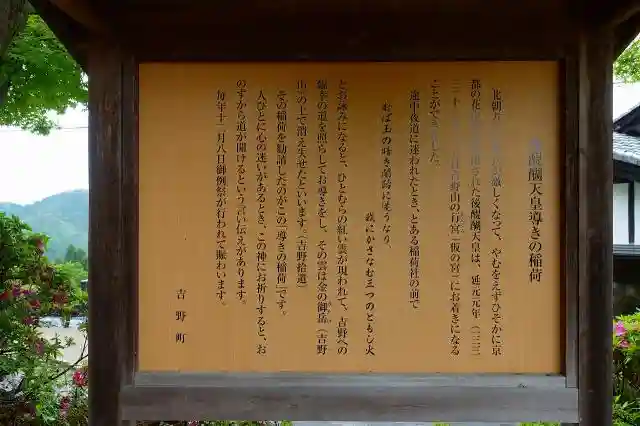 醍醐天皇導きの稲荷
北朝
激しくなって、やむをえずひそかに京
都の花
された後醍醐天皇は、延元元年(一三三
吉野山の行宮(仮の宮)にお着きになる
ことができました。
途中夜道に迷われたとき、とある稲荷社の前で
むば玉の暗き闇路に迷うなり、
我にかさなむ三つのともし火
とお詠みになると、ひとむらの紅い雲が現われて、吉野への
臨幸の道を照らしてお導きをし、その雲は金の御岳(吉野
山)の上で消え失せたといいます。(吉野拾遺)
その稲荷を勧請したのがこの「導きの稲荷」です。
人びとに心の迷いがあるとき、この神にお祈りすると、お
のずから道が開けるという言い伝えがあります。
毎年十二月八日御例祭が行われて賑わいます。
吉野町